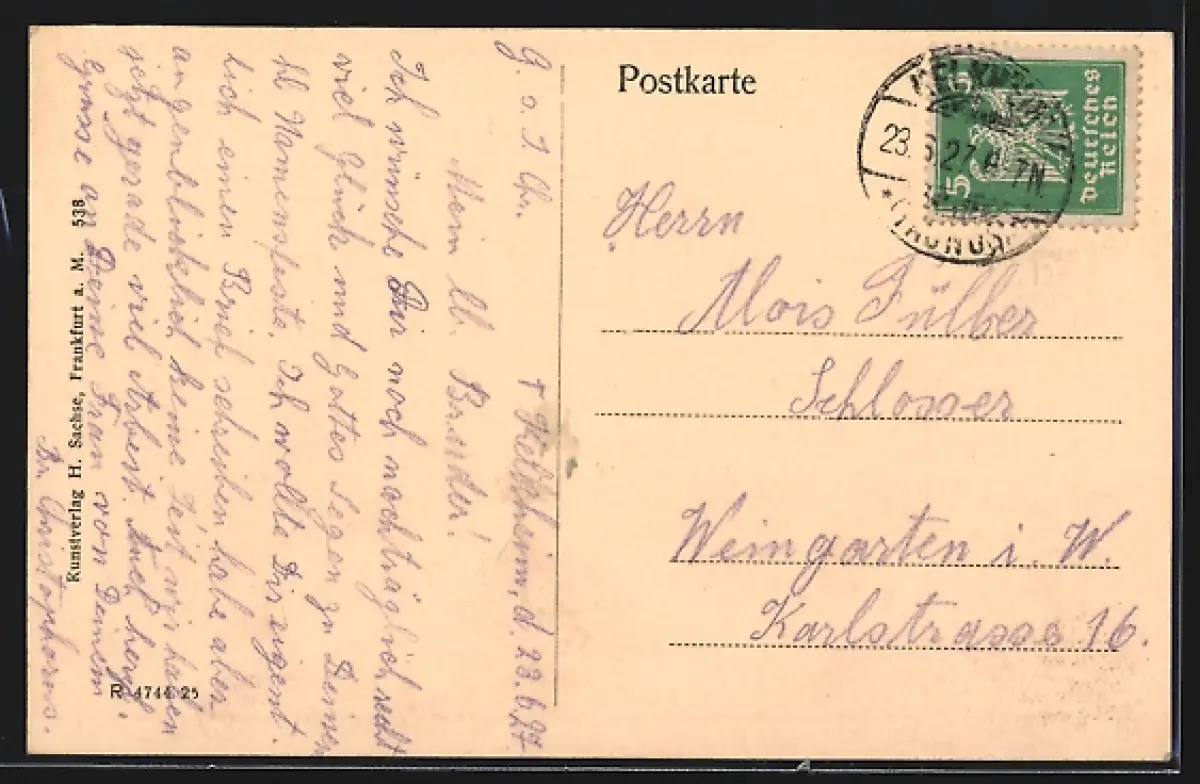 Postkarte
KELKHEIM
23.6.27.6-7N.
*(TAUNUS)
5 5
Deutsches
Reich
Herrn
Alois Fülber
Schlosser
Weingarten i. W.
Karlstrasse 16.
G. s. J. Chr.
+ Kelkheim, d. 23.6.27.
Mein lb. Bruder!
Ich wünsche Dir noch nachträglich recht
viel Glück und Gottes Segen zu Deinem
hl Namensfeste. Ich wollte Dir eigent
lich einen Brief schreiben, habe aber
augenblicklich keine Zeit, wir haben
jetzt gerade viel Arbeit. Auch herzl.
Grüsse an Deine Frau von Deinem
Br. Christophorus.
Kunstverlag H. Sachse, Frankfurt a. M. 538
R 4744 25